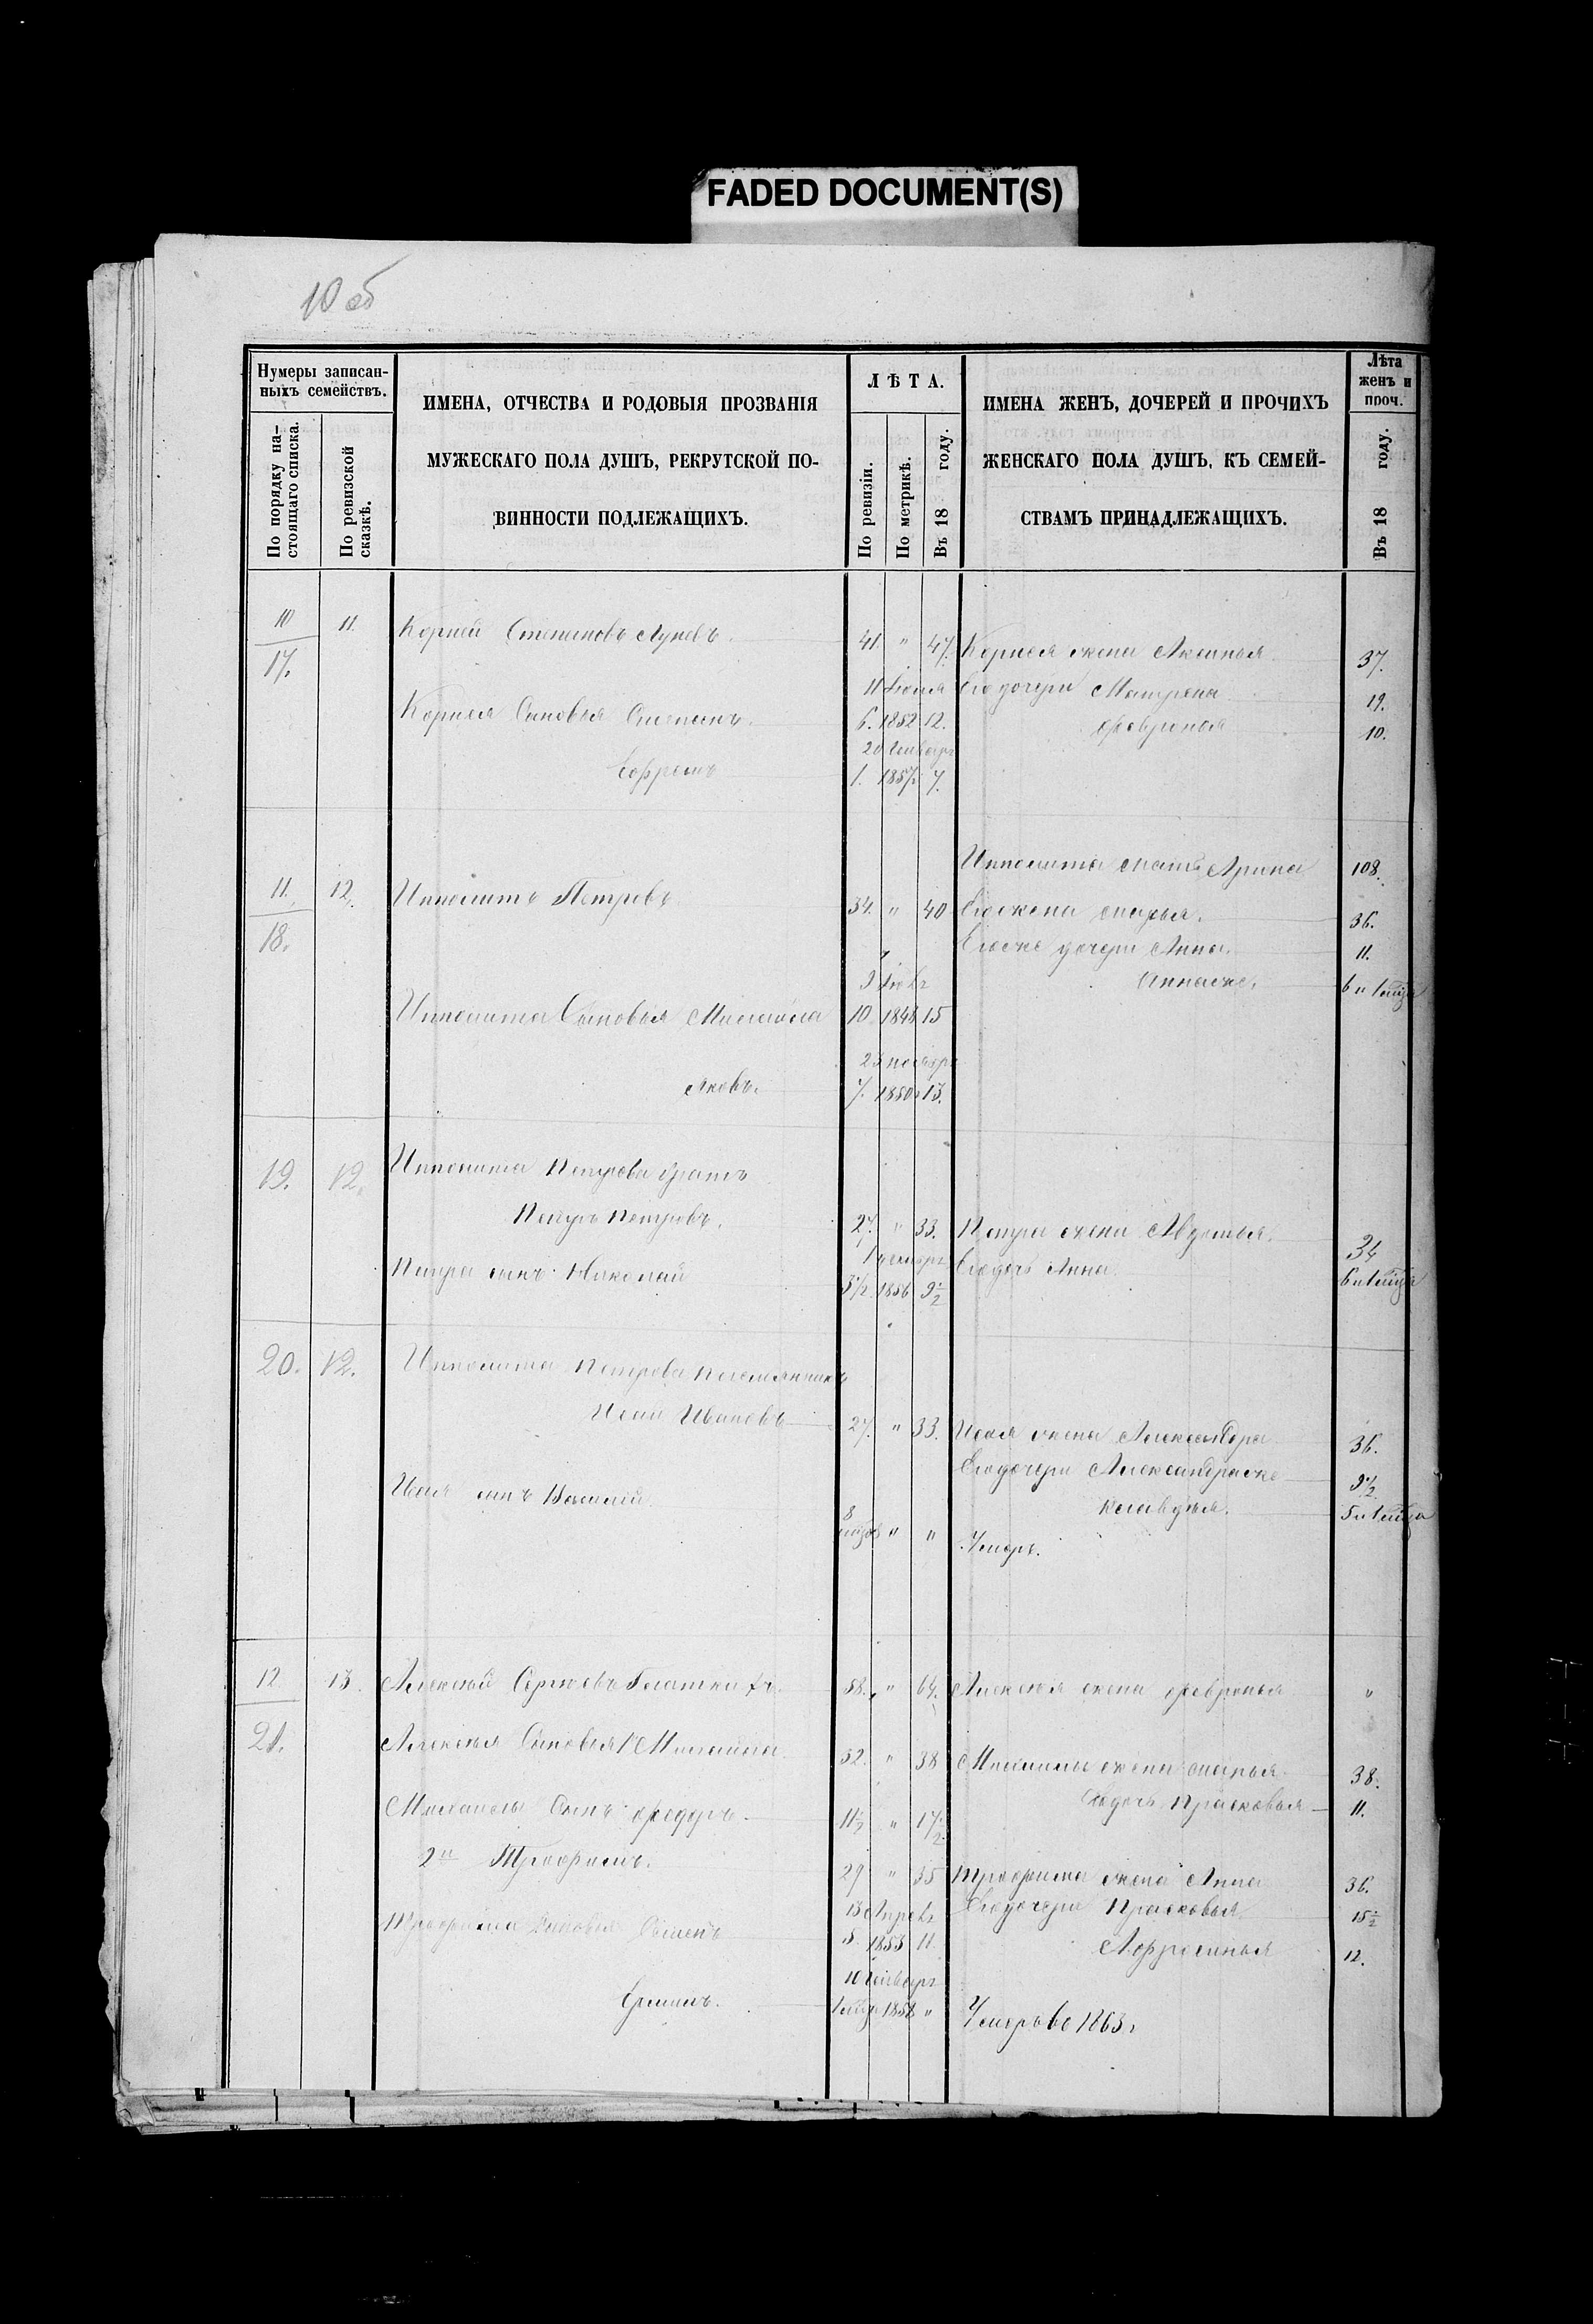 FADED DOCUMENT(S)
10 об
Нумеры записан-
ныхъ семействъ.
По порядку на-
стоящаго списка.
По ревизской
сказкѣ.
ИМЕНА, ОТЧЕСТВА И РОДОВЫЯ ПРОЗВАНІЯ
МУЖЕСКАГО ПОЛА ДУШЪ, РЕКРУТСКОЙ ПО-
ВИННОСТИ ПОДЛЕЖАЩИХЪ.
ЛѢТА.
По ревизіи.
По метрикѣ.
Въ 18 году.
ИМЕНА ЖЕНЪ, ДОЧЕРЕЙ И ПРОЧИХЪ
ЖЕНСКАГО ПОЛА ДУШЪ, КЪ СЕМЕЙ-
СТВАМЪ ПРИНАДЛЕЖАЩИХЪ.
Лѣта
женъ и
проч.
Въ 18 году.
10 11. Корней Степановъ 41. " 47. Корнея жена Аксинья 37.
17.
11 Іюля Его дочери Матрена 19.
Корнея Сыновья Степанъ. 6. 1852 12. Февронья 10.
20 Генваря
Ефремъ 1. 1857 7.
Ипполита мать Арина 108.
11. 12. Ипполитъ Петровъ 34. " 40 Его жена Марья. 36.
18. Его же дочери Анна. 11.
9 Анна же, 6 и 1 мѣсяца
Ипполита Сыновья Михайла 10. 1848 15
23 ноября
Яковъ. 7. 1850 13.
19. 12. Ипполита Петрова братъ
Петръ Петровъ. 27. " 33. Петра жена Авдотья. 34
1 декабря Его дочь Анна.
Петра сынъ Николай 3 1/2 1856 9 1/2
20. 12. Ипполита Петрова племянникъ
Исай Ивановъ 27. " 33. Исая жена Александра 36.
Его дочери Александра же 9 1/2
Исая сынъ Василій. Клавдія.
8 " " Умеръ.
12 13. Алексѣй Сергѣевъ 58. " 64. Алексѣя жена Февронья "
21. Алексѣя Сыновья 1й Михайла. 32. " 38 Михайлы жена Марья 38.
Его дочь Прасковья 11.
Михайлы Сынъ Федоръ 11 1/2 " 17 1/2
2й Трофимъ. 29 " 35 Трофима жена Анна 36.
13 Апрѣля Его дочери Прасковья 15 1/2
Трофима Сыновья Семенъ 5. 1853 11 Афросинья 12.
10 Генваря
1858 " Умеръ въ 1863 г